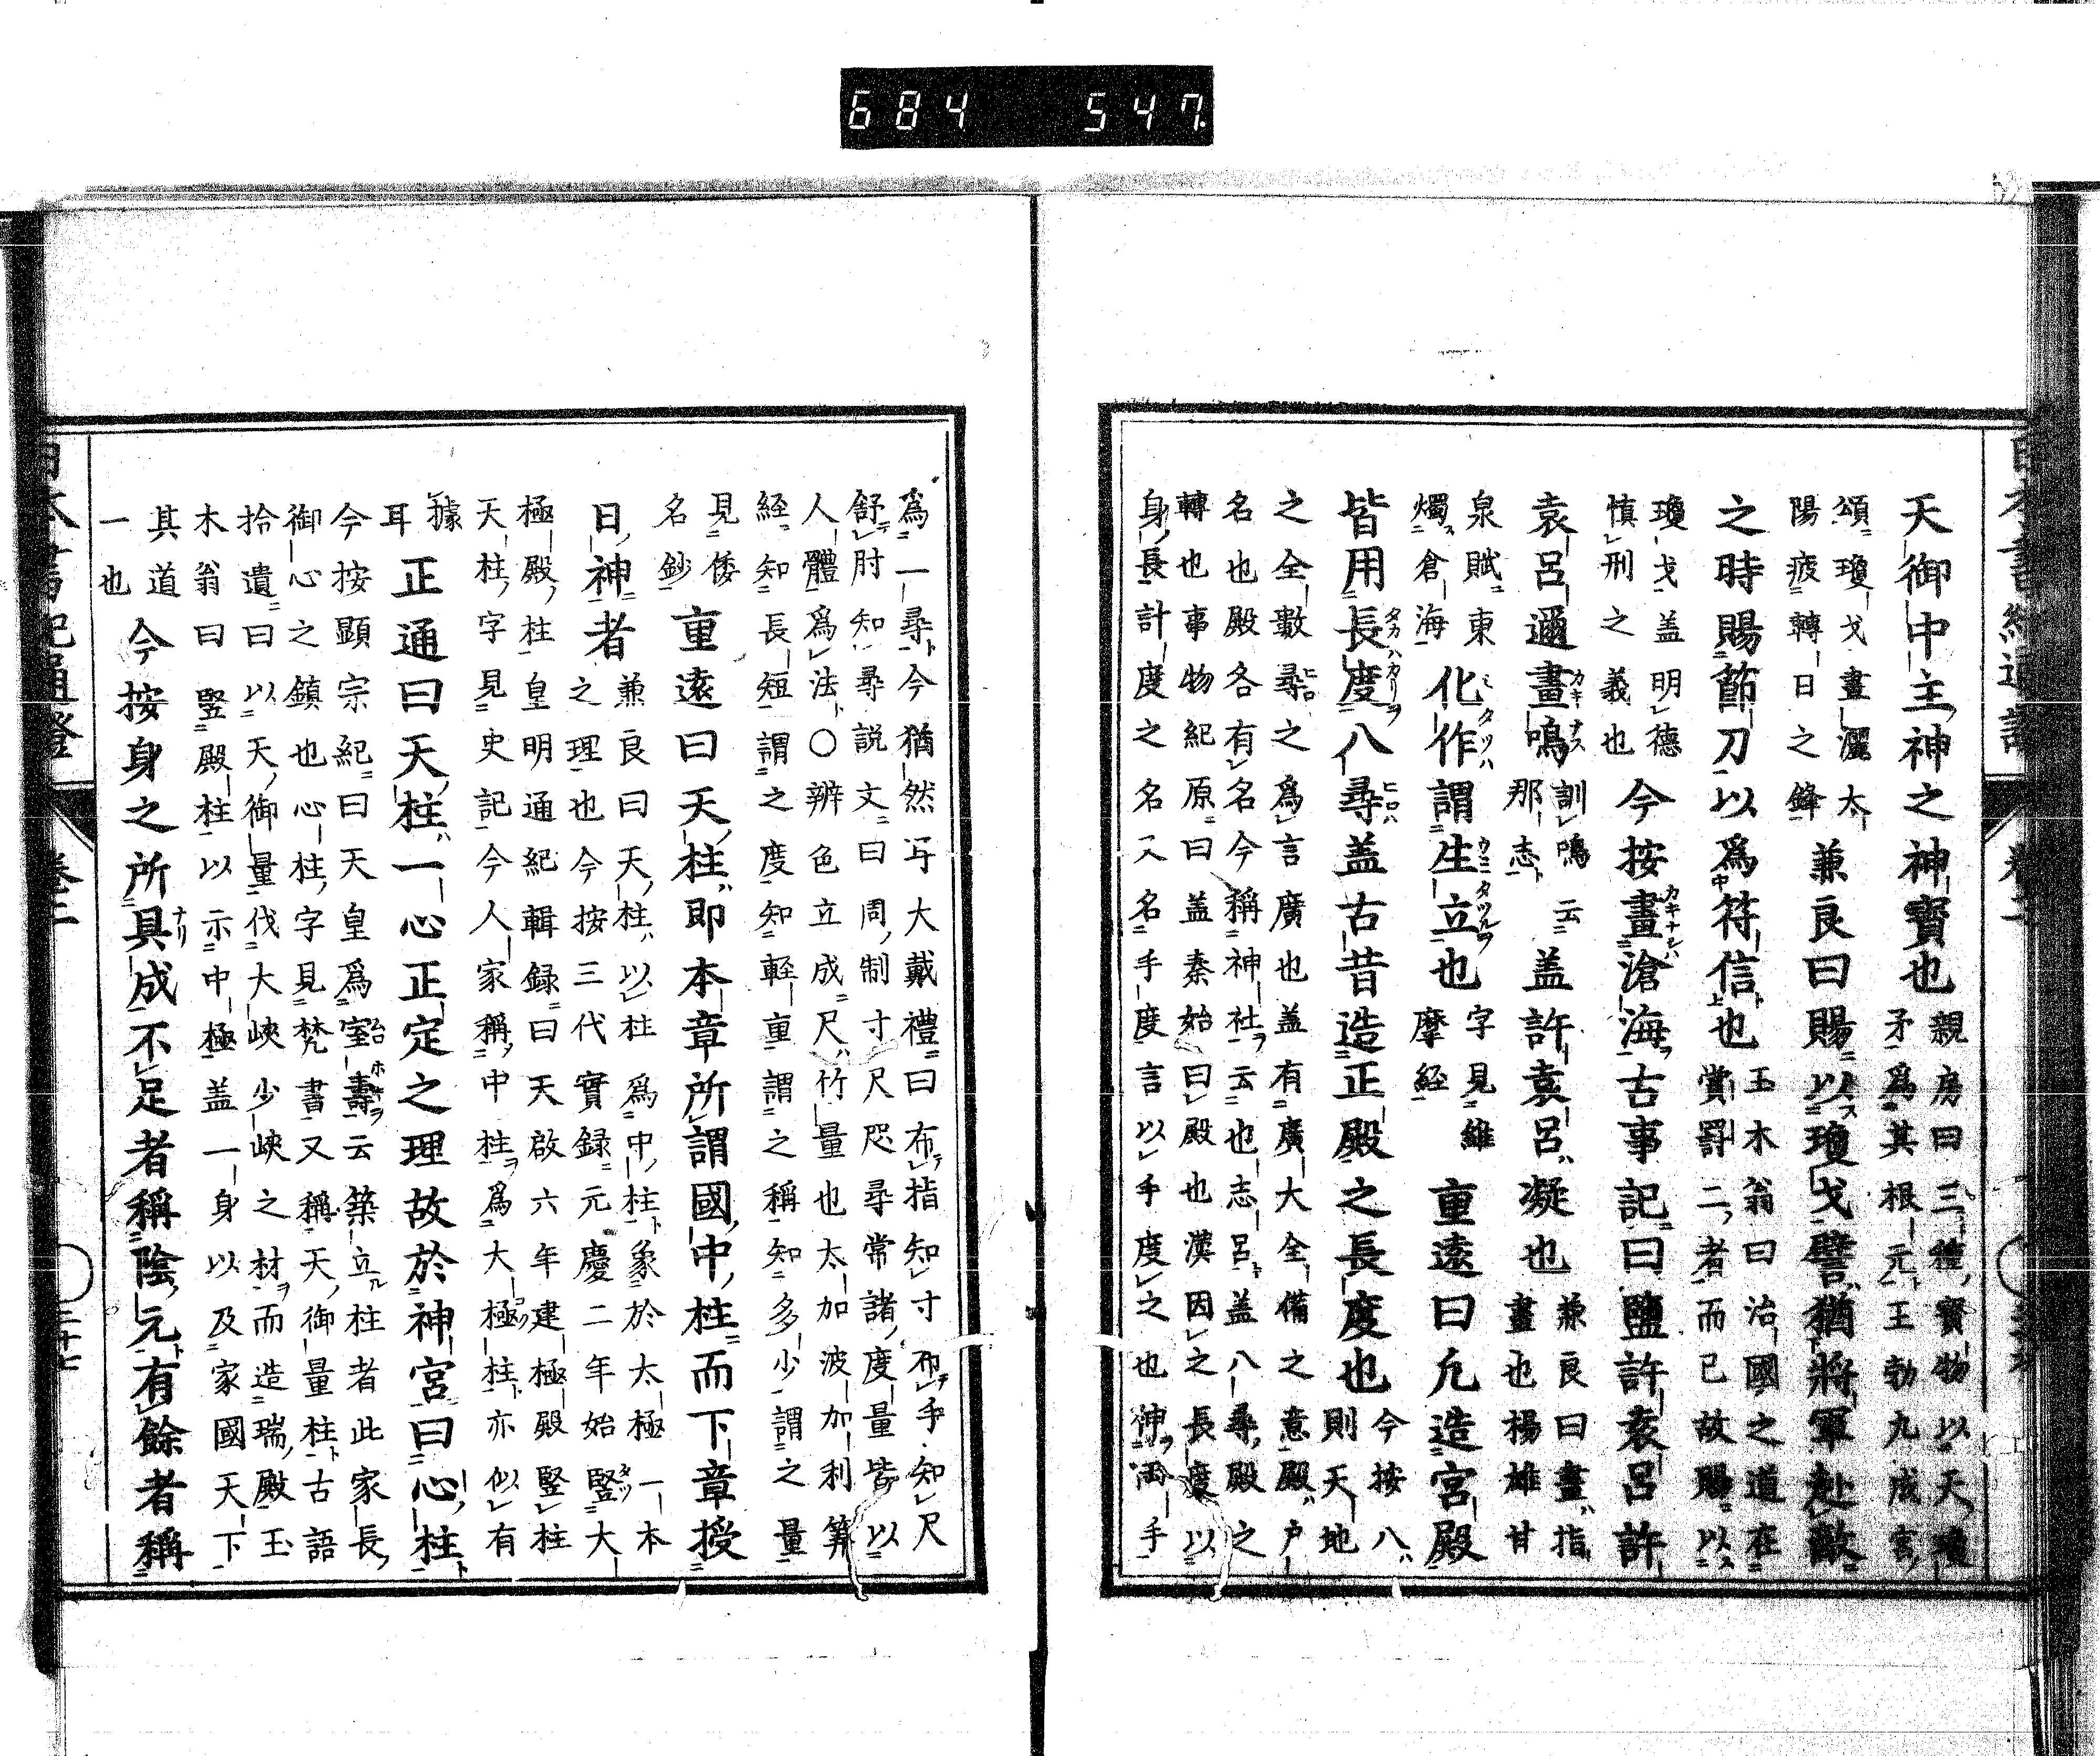 684 547
天御中主神之神寶也 親房曰三種寶物以天瓊
矛爲其根元王勃九成宮
頌瓊戈晝灑太
陽疲轉日之鋒 兼良曰賜以瓊戈譬猶將軍赴敵
之時賜節刀以爲符信也 玉木翁曰治國之道在
賞罰二者而已故賜以
瓊戈盖明德
慎刑之義也 今按畫滄海古事記曰鹽許袁呂許
袁呂邇畫鳴 訓鳴云
那志 盖許袁呂凝也 兼良曰畫指
畫也楊雄甘
泉賦東
燭倉海 化作謂生立也 字見維
摩経 重遠曰凢造宮殿
皆用長度八尋盖古昔造正殿之長度也 今按八
則天地
之全數尋之爲言廣也盖有廣大全備之意殿戸
名也殿各有名今稱神社云也志呂盖八尋殿之
轉也事物紀原曰盖秦始曰殿也漢因之長度以
身長計度之名又名手度言以手度之也神両手
爲一尋今猶然耳大戴禮曰布指知寸布手知尺
舒肘知尋説文曰周制寸尺咫尋常諸度量皆以
人體爲法○辨色立成尺竹量也太加波加利算
経知長短謂之度知輕重謂之稱知多少謂之量
見倭
名鈔 重遠曰天柱即本章所謂國中柱而下章授
日神者 兼良曰天柱以柱爲中柱象於太極一本
之理也今按三代實録元慶二年始竪大
極殿柱皇明通紀輯録曰天啟六年建極殿竪柱
天柱字見史記今人家稱中柱爲大極柱亦似有
據
耳 正通曰天柱一心正定之理故於神宮曰心柱
今按顯宗紀曰天皇爲室壽云築立柱者此家長
御心之鎮也心柱字見梵書又稱天御量柱古語
拾遺曰以天御量伐大峽少峽之材而造瑞殿玉
木翁曰竪殿柱以示中極盖一身以及家國天下
其道
一也 今按身之所具成不足者稱陰元有餘者稱